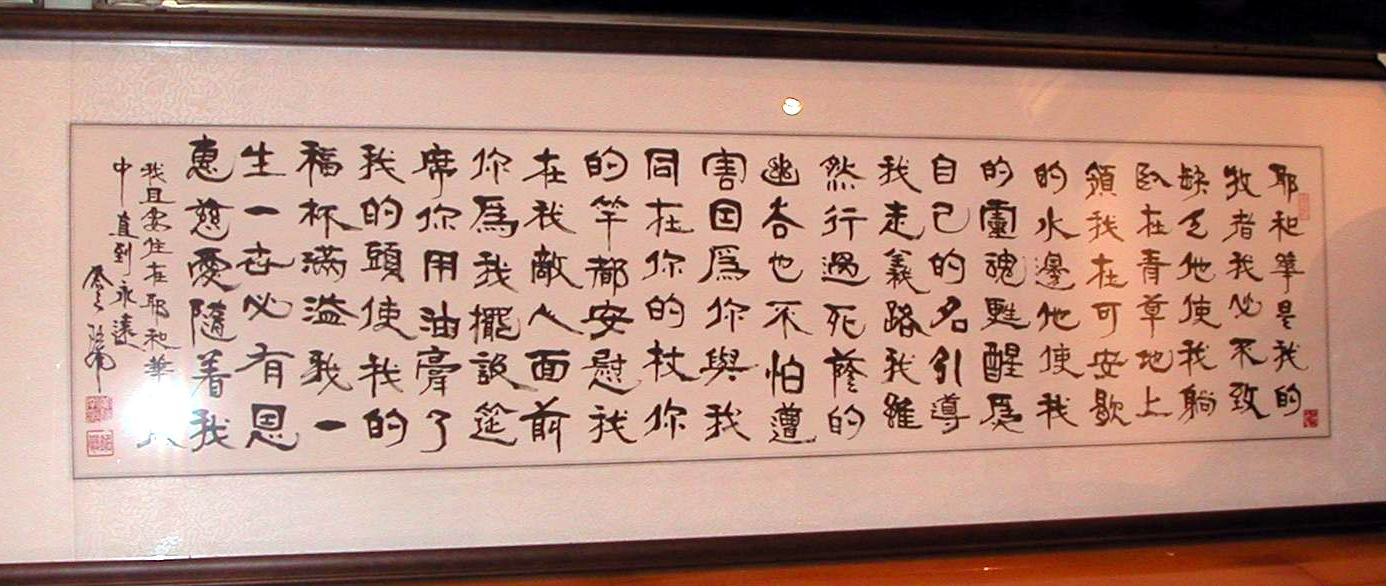 耶和華是我的
牧者我必不致
缺乏他使我躺
臥在青草地上
領我在可安歇
的水邊他使我
的靈魂甦醒爲
自己的名引導
我走義路我雖
然行過死蔭的
幽谷也不怕遭
害因爲你與我
同在你的杖你
的竿都安慰我
在我敵人面前
你爲我擺設筵
席你用油膏了
我的頭使我的
福杯滿溢我一
生一世必有恩
惠慈愛隨着我
我且要住在耶和華
中直到永遠